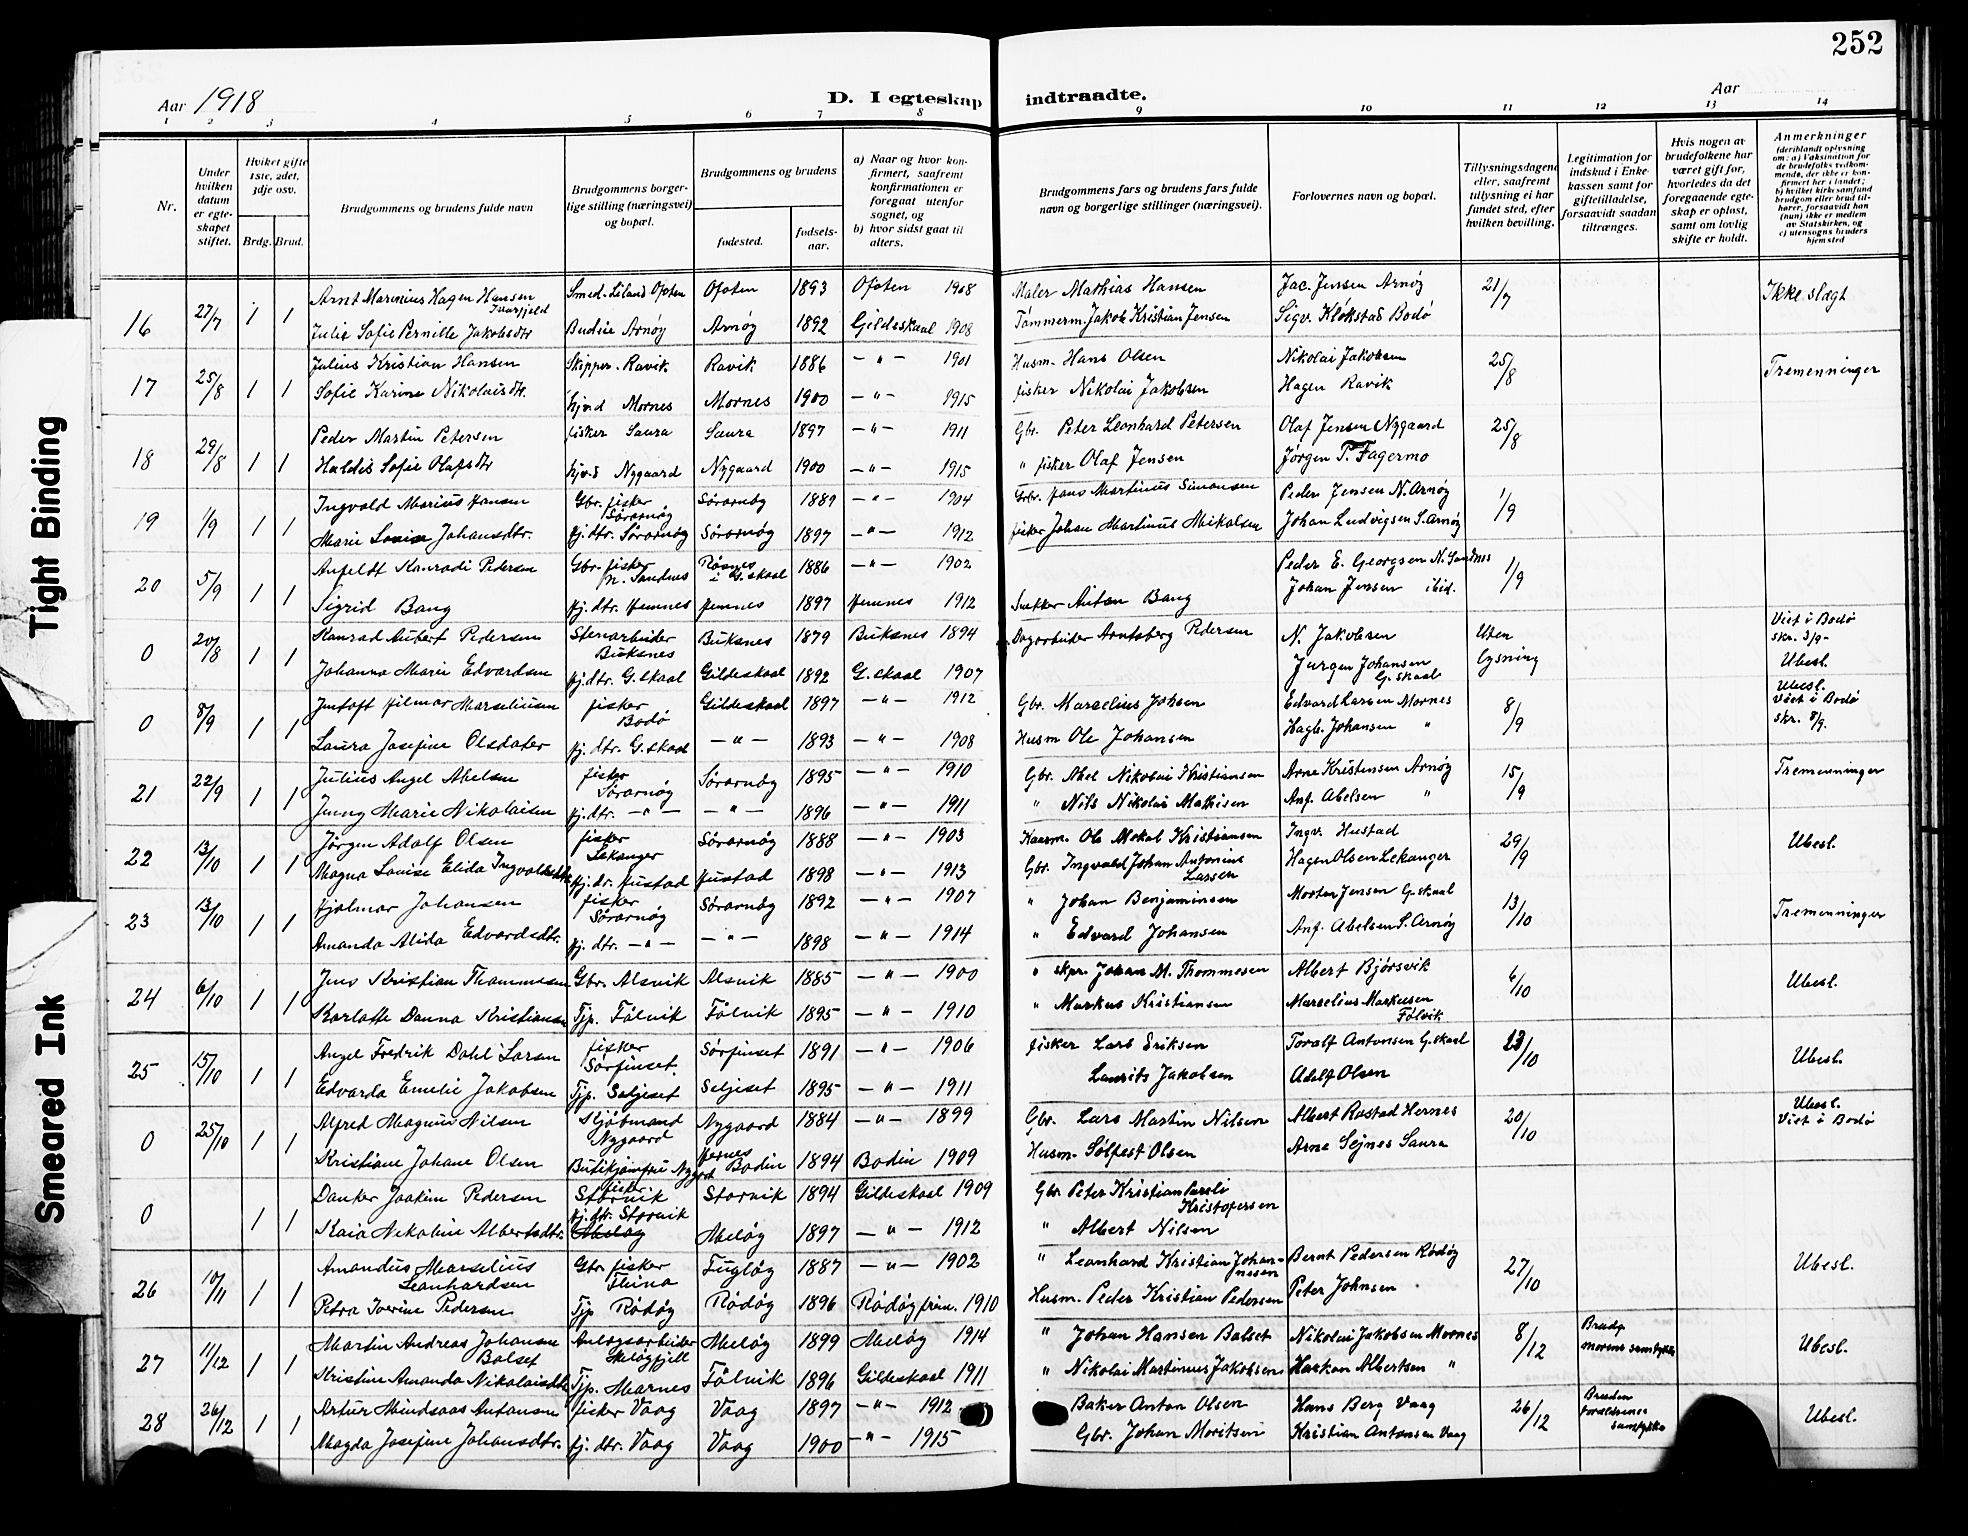 252
Aar 1918
D. I egteskap indtraadte.
Aar
1 2 3 4 5 6 7 8 9 10 11 12 13 14
Nr.
Under hvilken datum er egteskapet stiftet.
Hvilket gifte 1ste, 2det, 3dje osv.
Brdg. Brud.
Brudgommens og brudens fulde navn
Brudgommens borgerlige stilling (næringsvei) og bopæl.
Brudgommens og brudens
fødested.
fødselsaar.
a) Naar og hvor konfirmert, saafremt konfirmationen er foregaat utenfor sognet, og
b) hvor sidst gaat til alters.
Brudgommens fars og brudens fars fulde navn og borgerlige stillinger (næringsvei).
Forlovernes navn og bopæl.
Tillysningsdagene eller, saafremt tillysning ei har fundet sted, efter hvilken bevilling.
Legitimation for indskud i Enkekassen samt for giftetilladelse, forsaavidt saadan tiltrænges.
Hvis nogen av brudefolkene har været gift før, hvorledes da det foregaaende egteskap er opløst, samt om lovlig skifte er holdt.
Anmerkninger
(deriblandt oplysning om: a) Vaksination for de brudefolks vedkommende, der ikke er konfirmert her i landet; b) hvilket kirkesamfund brudgom eller brud tilhører, forsaavidt han (hun) ikke er medlem av Statskirken, og c) utensogns bruders hjemsted
16 27/7 1 1 Arnt Marinius Hagen Hansen Smed. Liland Ofoten Ofoten 1893 Ofoten 1908 Maler Mathias Hansen Jac. Jensen Arnøy 21/7 Ikke slægt
Julie Sofie Pernille Jakobsdtr Budeie Arnøy Arnøy 1892 Gildeskaal 1908 Tømmerm. Jakob Kristian Jensen Sigv. Klokstad Bodø
17 25/8 1 1 Julius Kristian Hansen Skipper. Ravik Ravik 1886 — " — 1901 Husm. Hans Olsen Nikolai Jakobsen 25/8 Tremenninger
Sofie Karine Nikolaisdtr. Mornes Mornes 1900 — " — 1915 fisker Nikolai Jakobsen Hagen Ravik
18 29/8 1 1 Peder Martin Petersen fisker Saura Saura 1897 — " — 1911 Gbr. Peter Leonhard Petersen Olaf Jensen Nygaard 25/8
Haldis Sofie Olafsdtr Nygaard Nygaard 1900 — " — 1915 " fisker Olaf Jensen Jørgen P. Fagermo
19 1/9 1 1 Ingvald Marius Hansen Gbr. fisker Sørarnøy Sørarnøy 1889 — " — 1904 Gbr. Hans Martinus Simonsen Peder Jensen N. Arnøy 1/9
Marie Louise Johansdtr. hj. dtr. Sørarnøy Sørarnøy 1897 — " — 1912 fisker Johan Martinus Mikalsen Johan Ludvigsen S. Arnøy
20 5/9 1 1 Anfeldt Konradi Pedersen Gbr. fisker N. Sandnes Røsnes i G.skaal 1886 — " — 1902 Peder E. Georgsen N. Sandnes 1/9
Sigrid Bang hj. dtr. Hemnes Hemnes 1897 Hemnes 1912 Snekker Anton Bang Johan Jensen ibid.
0 20/8 1 1 Konrad Aubert Pedersen Stenarbeider Buksnes Buksnes 1879 Buksnes 1894 Dagarbeider Arntsberg Pedersen N. Jakobsen Uten lysning Viet i Bodø skr. 3/9-
Johanna Marie Edvardsen hj. dtr. G.skaal Gildeskaal 1892 G.skaal 1907 Jørgen Johansen G.skaal Ubesl.
0 8/9 1 1 Hilmar Marseliusen fisker Bodø Gildeskaal 1897 — " — 1912 Gbr. Marselius Johsen Edvard Larsen Mornes 8/9 Ubesl. Viet i Bodø skr. 8/9.
Laura Josefine Olsdater hj. dtr. G.skaal — " — 1893 — " — 1908 Husm Ole Johansen Hagb. Johansen "
21 22/9 1 1 Julius Angel Abelsen fisker Sørarnøy Sørarnøy 1895 — " — 1910 Gbr. Abel Nikolai Kristiansen Arne Kristensen Arnøy 15/9 Tremenninger
Jenny Marie Nikolaisen hj. dtr. — " — — " — 1896 — " — 1911 " Nils Nikolai Mathisen Anf. Abelsen "
22 13/10 1 1 Jørgen Adolf Olsen fisker Lekanger Sørarnøy 1888 — " — 1903 Kaarm. Ole Mekal Kristiansen Ingv. Hustad 29/9 Ubesl.
Magna Louise Elida Ingvaldsdtr hj. dr. Hustad Hustad 1898 — " — 1913 Gbr. Ingvald Johan Antonius Larsen Hagen Olsen Lekanger
23 13/10 1 1 Hjalmar Johansen fisker Sørarnøy Sørarnøy 1892 — " — 1907 " Johan Benjaminsen Morten Jensen G.skaal 13/10 Tremenninger
Amanda Alida Edvardsdtr. hj. dtr. — " — — " — 1898 — " — 1914 " Edvard Johansen Anf. Abelsen S. Arnøy
24 6/10 1 1 Jens Kristian Thommesen Gbr. Alsvik Alsvik 1885 — " — 1900 " skpr. Johan M. Thommesen Albert Bjørsvik 6/10 Ubesl.
Karlotte Danna Kristiansen Tjp. Følvik Følvik 1895 — " — 1910 " Markus Kristiansen Marselius Markusen Følvik
25 15/10 1 1 Angel Fredrik Dahl Larsen fisker Sørfinset. Sørfinset 1891 — " — 1906 fisker Lars Eriksen Toralf Antonsen G.skaal 13/10 Ubesl.
Edvarda Emelie Jakobsen Tjp. Seljeset Seljeset 1895 — " — 1911 Laurits Jakobsen Adolf Olsen
0 25/10 1 1 Alfred Magnus Nilsen Nygaard Nygaard 1884 — " — 1899 Gbr. Lars Martin Nilsen Albert Rostad Hernes 20/10 Ubesl. Viet i Bodø
Kristiane Johane Olsen Butikjomfru Nygrd Hernes Bodin 1894 Bodin 1909 Husm. Sølfest Olsen Arne Sejnes Saura
0 1 1 Danker Joakim Pedersen fisker Storvik Storvik 1894 Gildeskaal 1909 Gbr Peter Kristian Pareli Kristofersen
Kaia Nikoline Albertsdtr. hj. dtr. Storvik Meløy Meløy 1897 — " — 1912 " Albert Nilsen
26 10/11 1 1 Amandus Marselius Leonhardsen Gbr. fisker Fleina Fugløy 1887 — " — 1902 " Leonhard Kristian Johannessen Bernt Pedersen Rødøy 27/10 Ubesl.
Petra Iverine Pedersen Tjp Rødøy Rødøy 1896 Rødøy 1910 Husm. Peder Kristian Pedersen Peter Johnsen
27 11/12 1 1 Martin Andreas Johansen Bolset Anlægsarbeider Meløyfjell Meløy 1899 Meløy 1914 " Johan Hansen Bolset Nikolai Jakobsen Mornes 8/12 Brudg morens samtykke Ubesl.
Kristine Amanda Nikolaisdtr Tjp. Marnes Følvik 1896 Gildeskaal 1911 " Nikolai Martinius Jakobsen Haakon Albertsen "
28 26/12 1 1 Artur Mindsaas Antonsen fisker Vaag Vaag 1897 — " — 1912 Baker Anton Olsen Hans Berg Vaag 26/12 Bruden foreldrenes samtykke Ubesl.
Magda Josefine Johansdtr. hj. dtr. Vaag Vaag 1900 — " — 1915 Gbr. Johan Moritsen Kristian Antonsen Vaag
Tight Binding
Smeared Ink